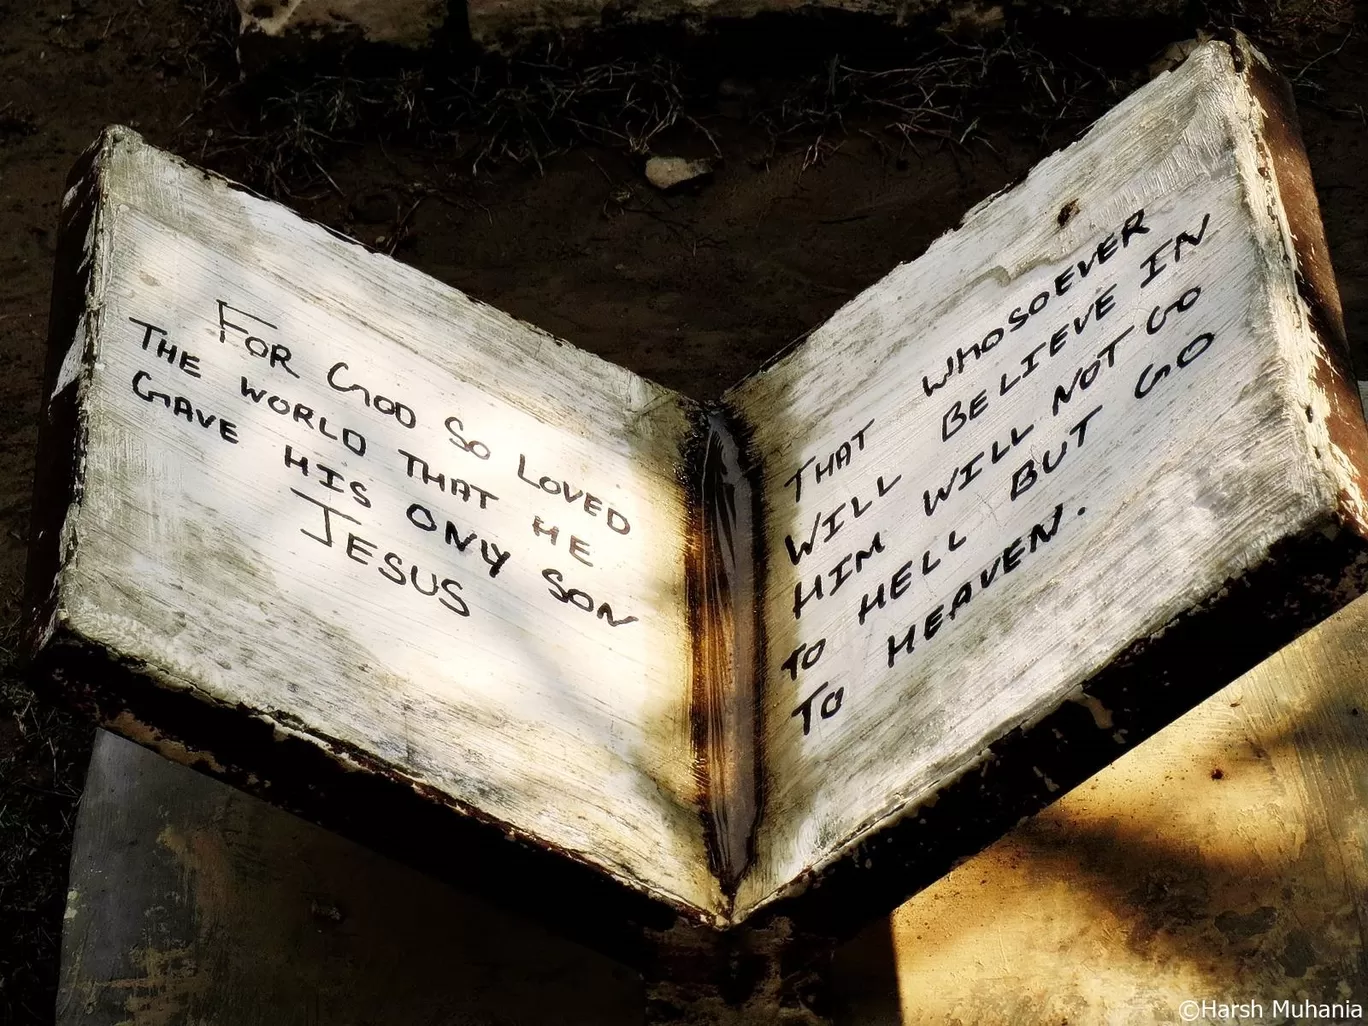 FOR GOD SO LOVED
THE WORLD THAT HE
GAVE HIS ONLY SON
JESUS
THAT WHOSOEVER
WILL BELIEVE IN
HIM WILL NOT GO
TO HELL BUT GO
TO HEAVEN.
©Harsh Muhania